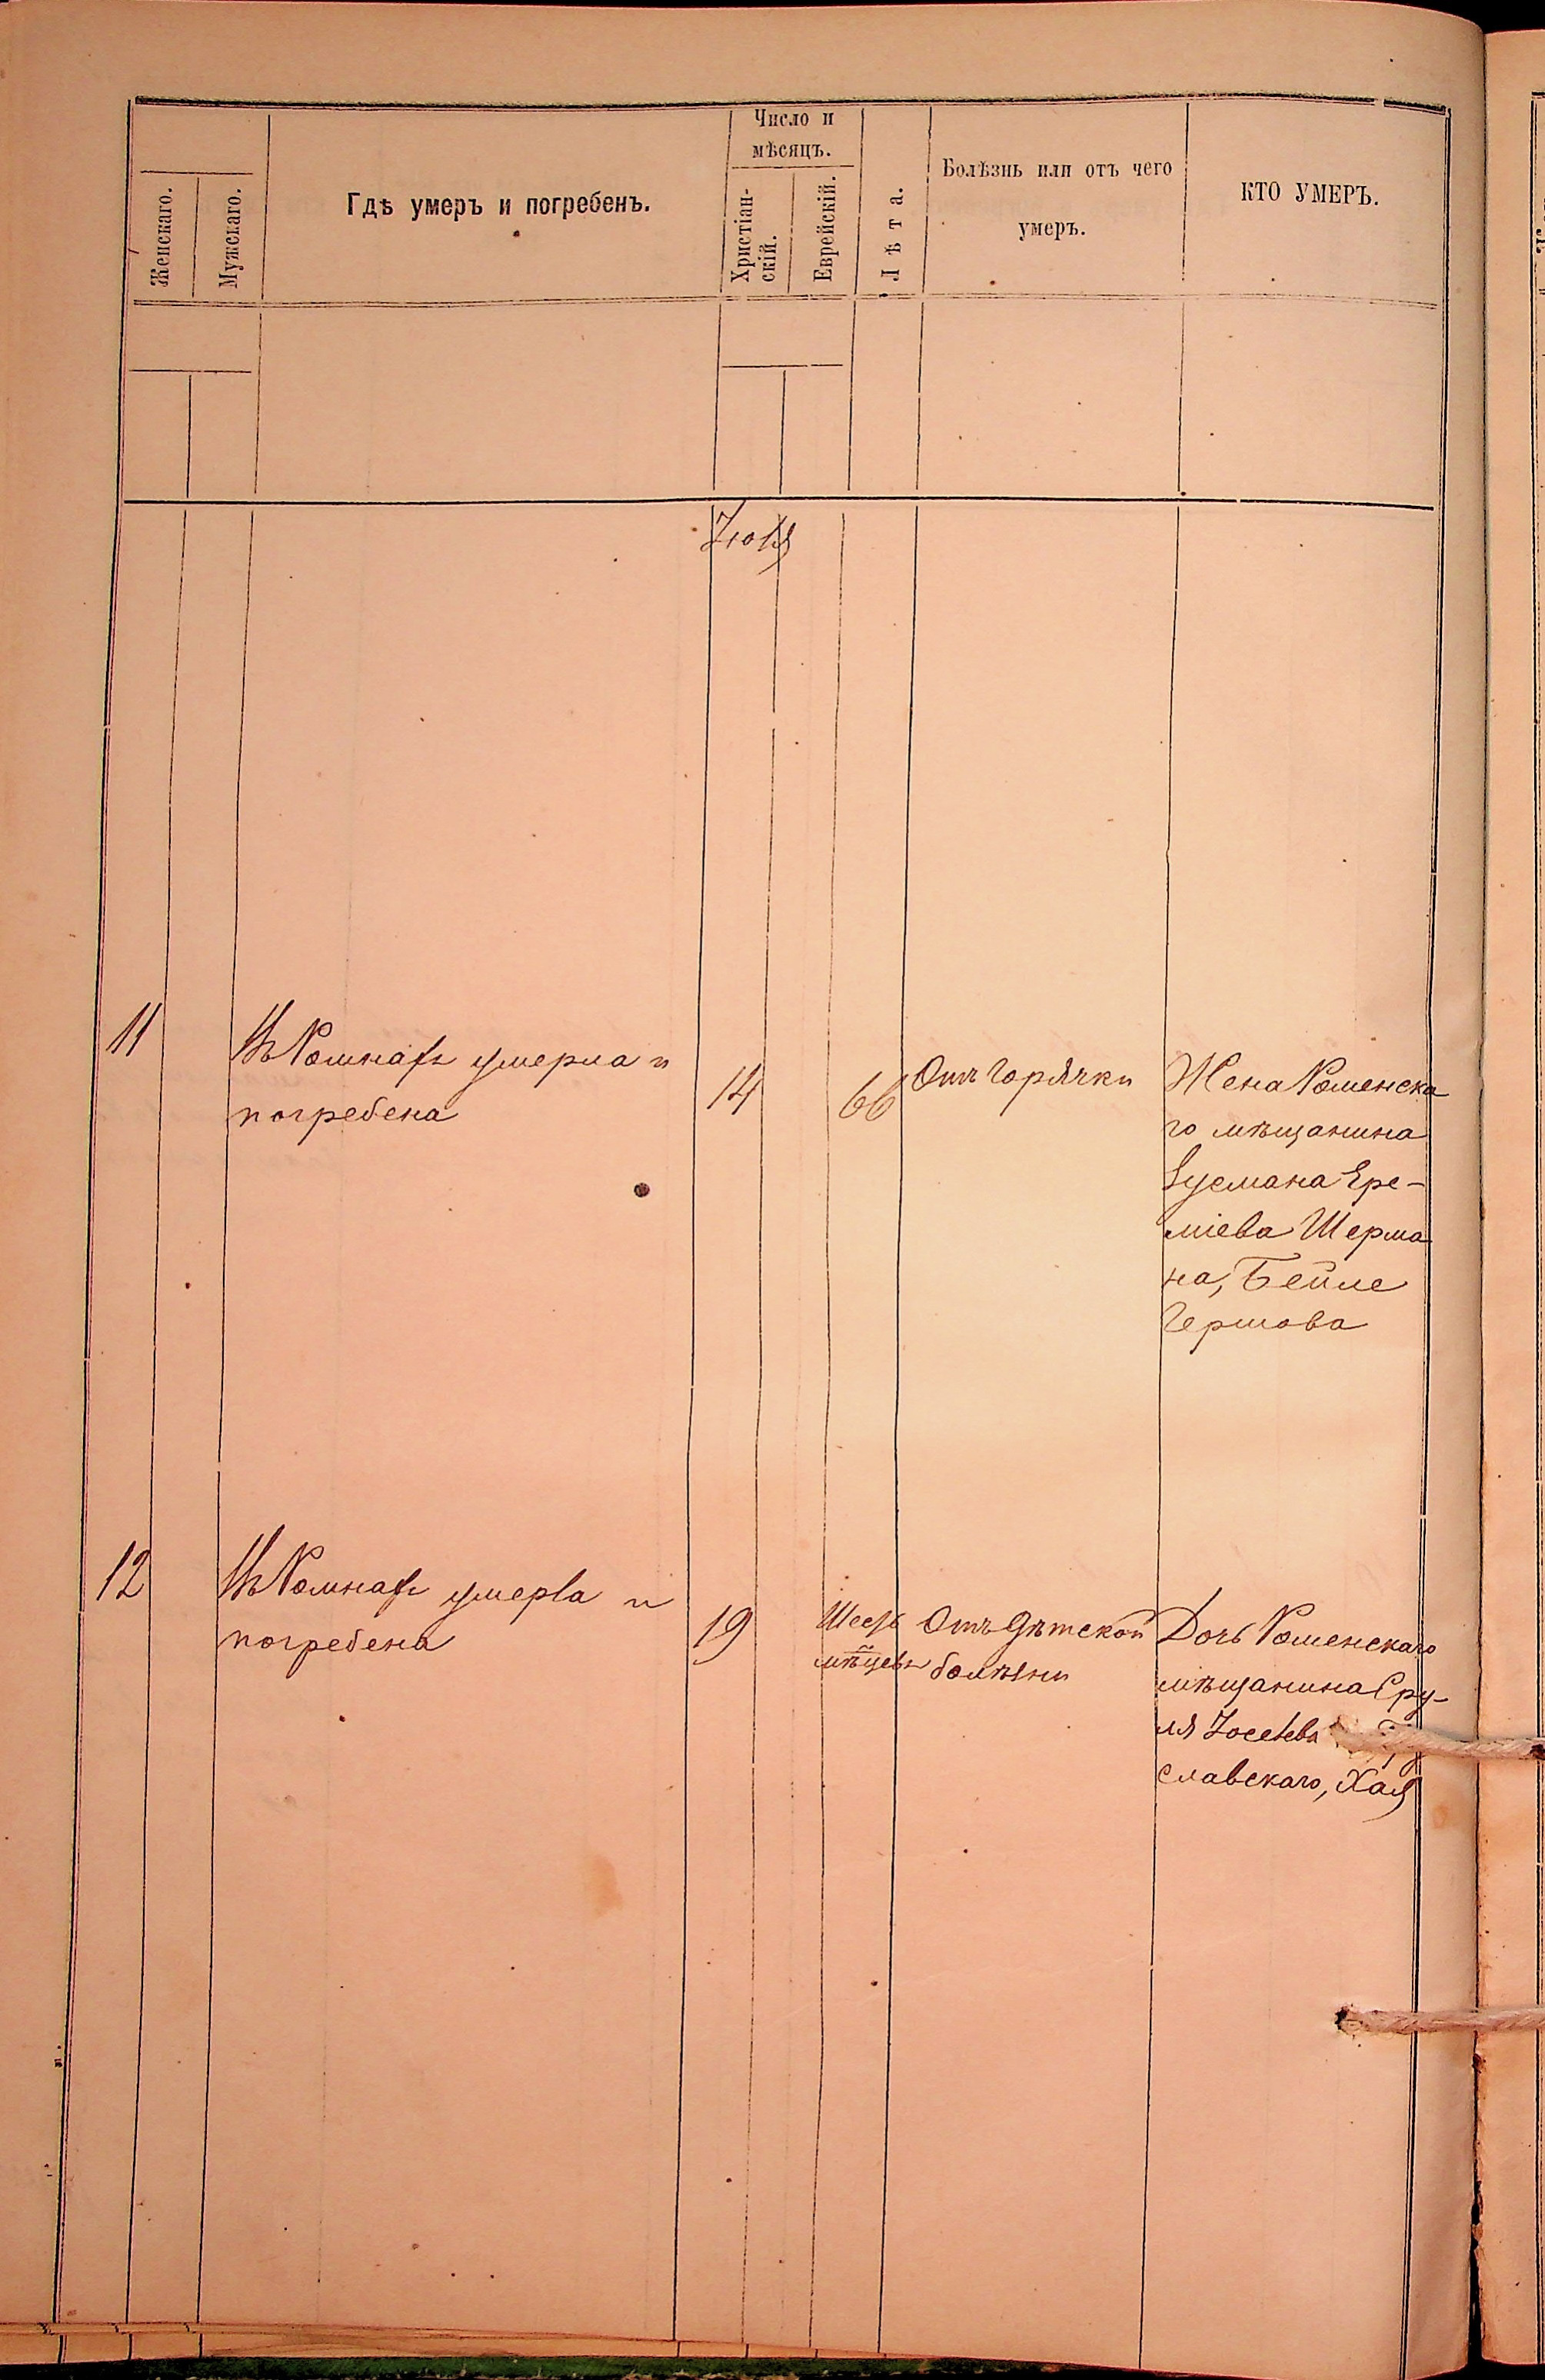 Женскаго.
Мужскаго.
Гдѣ умеръ и погребенъ.
Число и
мѣсяцъ.
Христіан-
скій.
Еврейскій.
Лѣта.
Болѣзнь или отъ чего
умеръ.
КТО УМЕРЪ.
Іюля
11
Въ Ромнахъ умерла и
погребена
14
66
Отъ горячки
Жена Роменска
го мѣщанина
Зусмана Ере-
міева Шерма
на, Бейле
Гершова
12
Въ Ромнахъ умерла и
погребена
19
Шесть
мѣцевъ
Отъ дѣтской
болѣзни
Дочь Роменскаго
мѣщанина Сру-
ля Іосева
славскаго, Хая